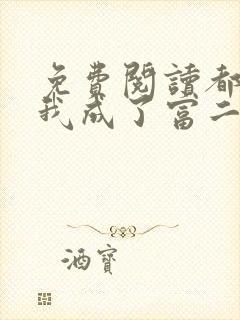 免費閱讀都
我成了富二
酒寶